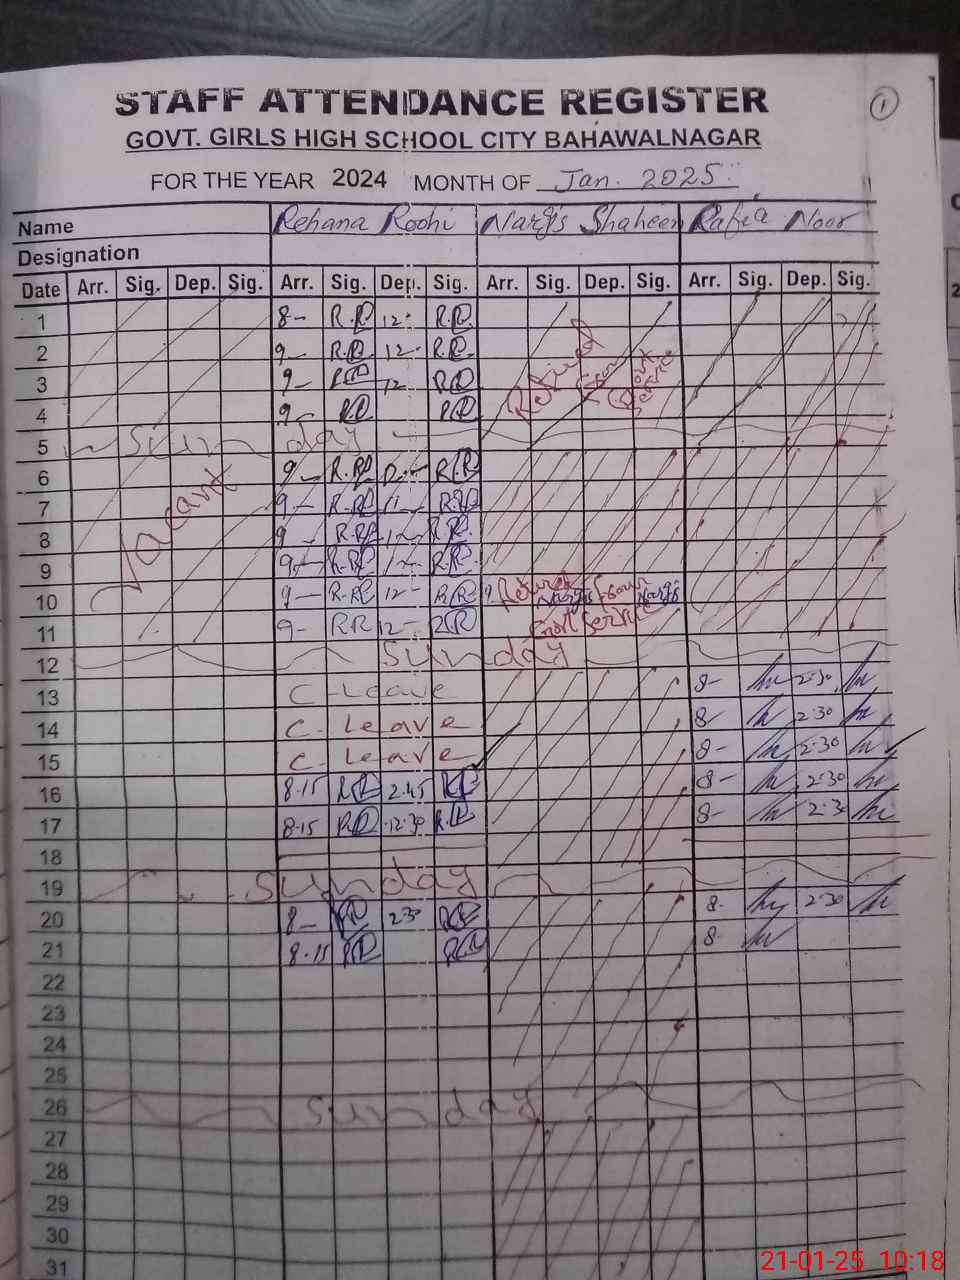 1
STAFF ATTENDANCE REGISTER
GOVT. GIRLS HIGH SCHOOL CITY BAHAWALNAGAR
FOR THE YEAR 2024 MONTH OF Jan. 2025
Name Rehana Roohi Nargis Shaheen Rafia Noor
Designation
Date Arr. Sig. Dep. Sig. Arr. Sig. Dep. Sig. Arr. Sig. Dep. Sig. Arr. Sig. Dep. Sig.
1 8- R.R 12- R.R. Retired from Govt Service
2 9- R.R 12- R.R.
3 9- RR 12 RR
4 9- RR RR
5 Sunday
Vacant
6 9- R.R R.R
7 9- R.R R.R
8 9- R.R R.R.
9 9- R.R R.R.
10 9- R.R 12- RR Retired from
11 9- RR 12- RR Govt Service
12 Sunday
13 C. Leave 8- 2:30
14 C. Leave 8- 2:30
15 C. Leave 8- 2:30
16 8.15 RR 2.45 RR 8- 2:30
17 8.15 RR 12.30 R.R. 8- 2:30
18
19 Sunday
20 8- RR 2:30 RR 8- 2:30
21 8.15 RR RR 8-
22
23
24
25
26 Sunday
27
28
29
30
31
21-01-25 10:18